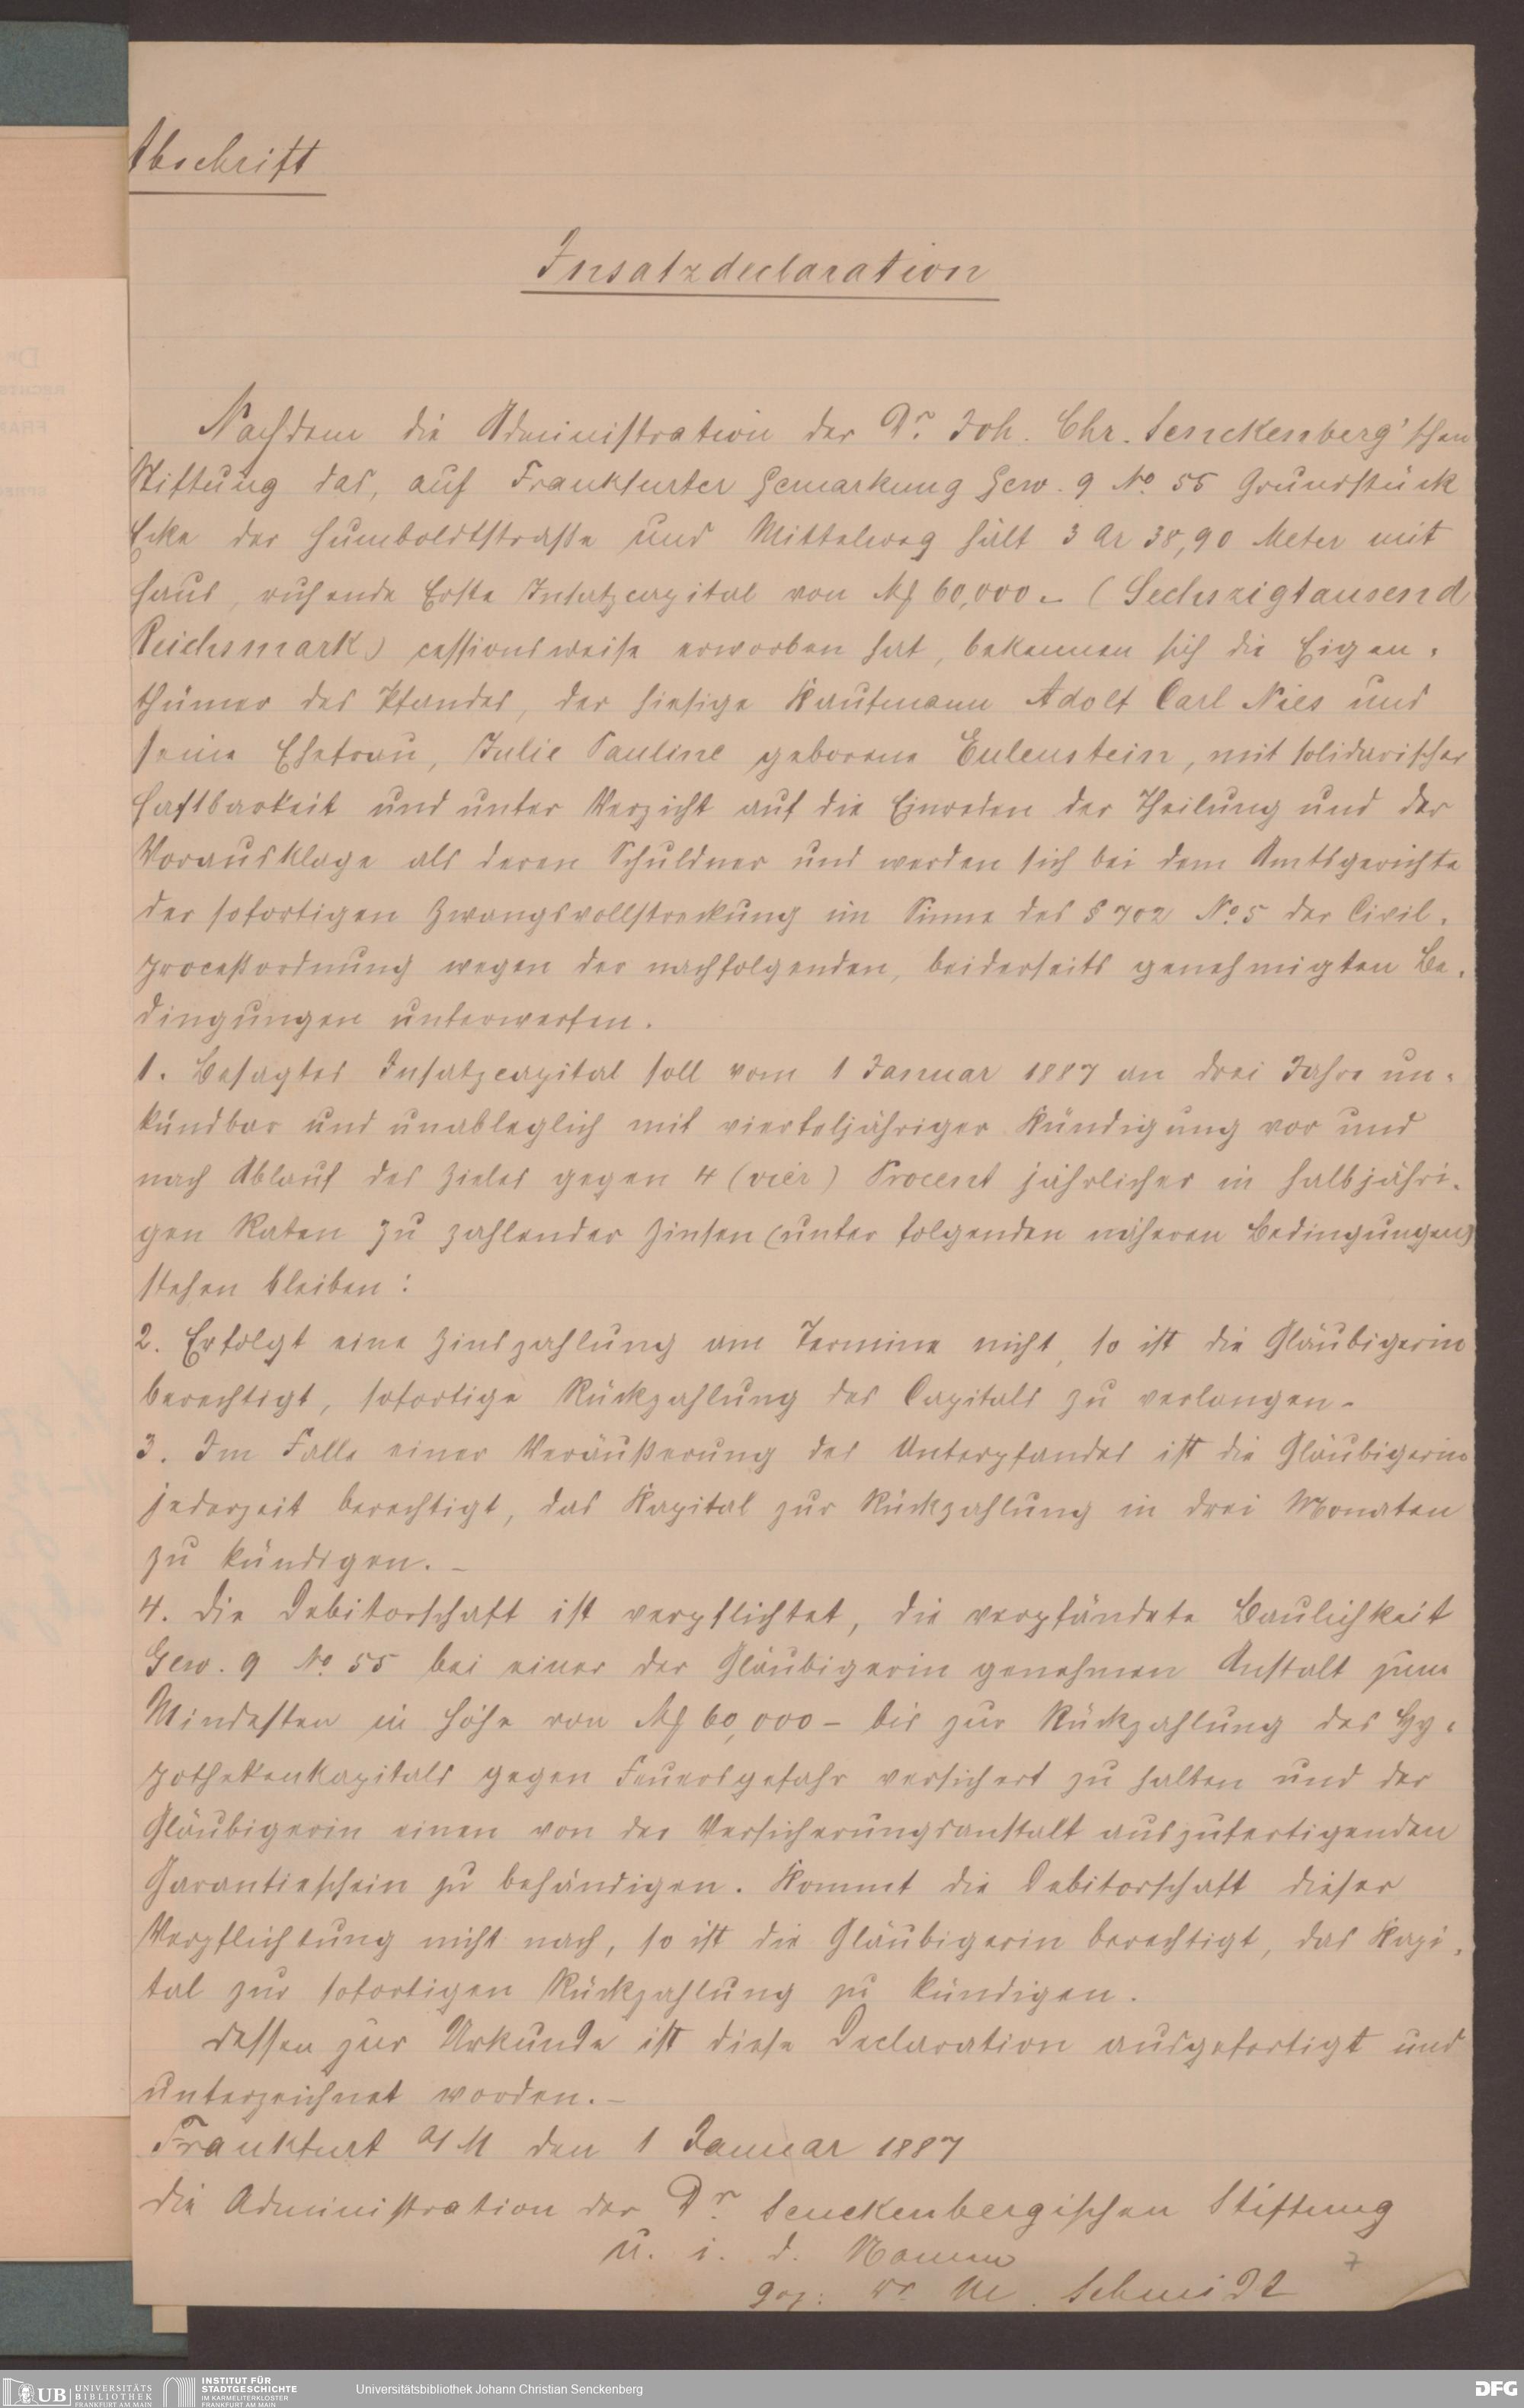 Abschrift
Insatzdeclaration
Nachdem die Administration der Dr. Joh. Chr. Senckenberg'schen
Stiftung das, auf Frankfurter Gemarkung Gew. 9 No. 55 Grundstück
Ecke der Humboldtstraße und Mittelweg hält 3 Ar 38,90 Meter mit
Haus, ruhende Erste Insatzcapital von M 60,000.- (Sechszigtausend
Reichsmark) cessionsweise erworben hat, bekennen sich die Eigen-
thümer des Pfandes, der hiesige Kaufmann Adolf Carl Nies und
seine Ehefrau, Julie Pauline geborene Eulenstein, mit solidarischer
Haftbarkeit und unter Verzicht auf die Einreden der Theilung und der
Vorausklage als deren Schuldner und werden sich bei dem Amtsgerichte
der sofortigen Zwangsvollstreckung im Sinne des § 702 No. 5 der Civil-
proceßordnung wegen der nachfolgenden, beiderseits genehmigten Be-
dingungen unterwerfen.
1. Besagtes Insatzcapital soll vom 1 Januar 1887 an drei Jahre un-
kündbar und unableglich mit vierteljähriger Kündigung vor und
nach Ablauf des Zieles gegen 4 (vier) Procent jährlicher in halbjähri-
gen Raten zu zahlender Zinsen (unter folgenden näheren Bedingungen)
stehen bleiben:
2. Erfolgt eine Zinszahlung am Termine nicht, so ist die Gläubigerin
berechtigt, sofortige Rückzahlung des Capitals zu verlangen.
3. Im Falle einer Veräußerung des Unterpfandes ist die Gläubigerin
jederzeit berechtigt, das Kapital zur Rückzahlung in drei Monaten
zu kündigen. -
4. Die Debitorschaft ist verpflichtet, die verpfändete Baulichkeit
Gew. 9 No. 55 bei einer der Gläubigerin genehmen Anstalt zum
Mindesten in Höhe von M 60,000 - bis zur Rückzahlung des Hy-
pothekenkapitals gegen Feuersgefahr versichert zu halten und der
Gläubigerin einen von der Versicherungsanstalt auszufertigenden
Garantieschein zu behändigen. Kommt die Debitorschaft dieser
Verpflichtung nicht nach, so ist die Gläubigerin berechtigt, das Kapi-
tal zur sofortigen Rückzahlung zu kündigen.
Dessen zur Urkunde ist diese Declaration ausgefertigt und
unterzeichnet worden. -
Frankfurt a/M den 1 Januar 1887
Die Administration der Dr. Senckenbergischen Stiftung
u. i. d. Namen
gez: Dr M. Schmidt
7
UB UNIVERSITÄTS
BIBLIOTHEK
FRANKFURT AM MAIN
INSTITUT FÜR
STADTGESCHICHTE
IM KARMELITERKLOSTER
FRANKFURT AM MAIN
Universitätsbibliothek Johann Christian Senckenberg
DFG